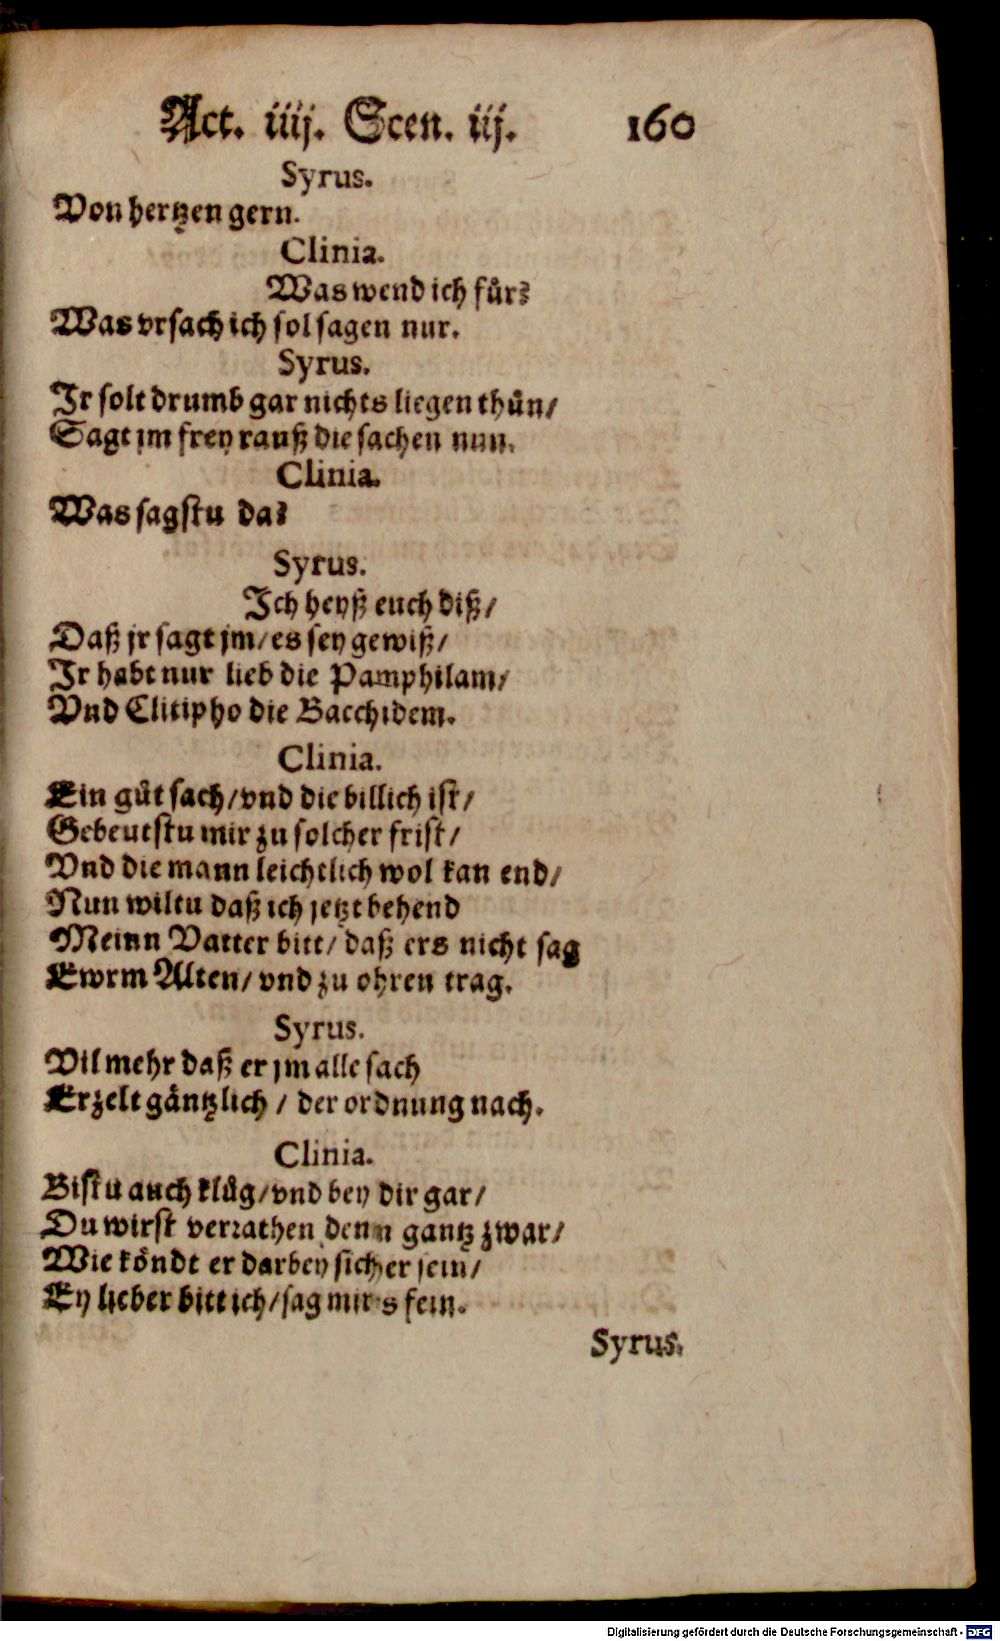 Act. iiij. Scen. iij. 160
Syrus.
Von hertzen gern.
Clinia.
Was wend ich fuͤr?
Was vrsach ich sol sagen nur.
Syrus.
Jr solt drumb gar nichts liegen thuͦn/
Sagt jm frey rauß die sachen nun.
Clinia.
Was sagstu da?
Syrus.
Ich heyß euch diß/
Daß jr sagt jm/ es sey gewiß/
Ir habt nur lieb die Pamphilam/
Vnd Clitipho die Bacchidem.
Clinia.
Ein guͦt sach/ vnd die billich ist/
Gebeutstu mir zu solcher frist/
Vnd die mann leichtlich wol kan end/
Nun wiltu daß ich jetzt behend
Meinn Vatter bitt/ daß ers nicht sag
Ewrm Alten/ vnd zu ohren trag.
Syrus.
Vil mehr daß er jm alle sach
Erzelt gaͤntzlich / der ordnung nach.
Clinia.
Bistu auch kluͦg/ vnd bey dir gar/
Du wirst verrathen denn gantz zwar/
Wie koͤndt er darbey sicher sein/
Ey lieber bitt ich/ sag mirs fein.
Syrus.
Digitalisierung gefördert durch die Deutsche Forschungsgemeinschaft - DFG